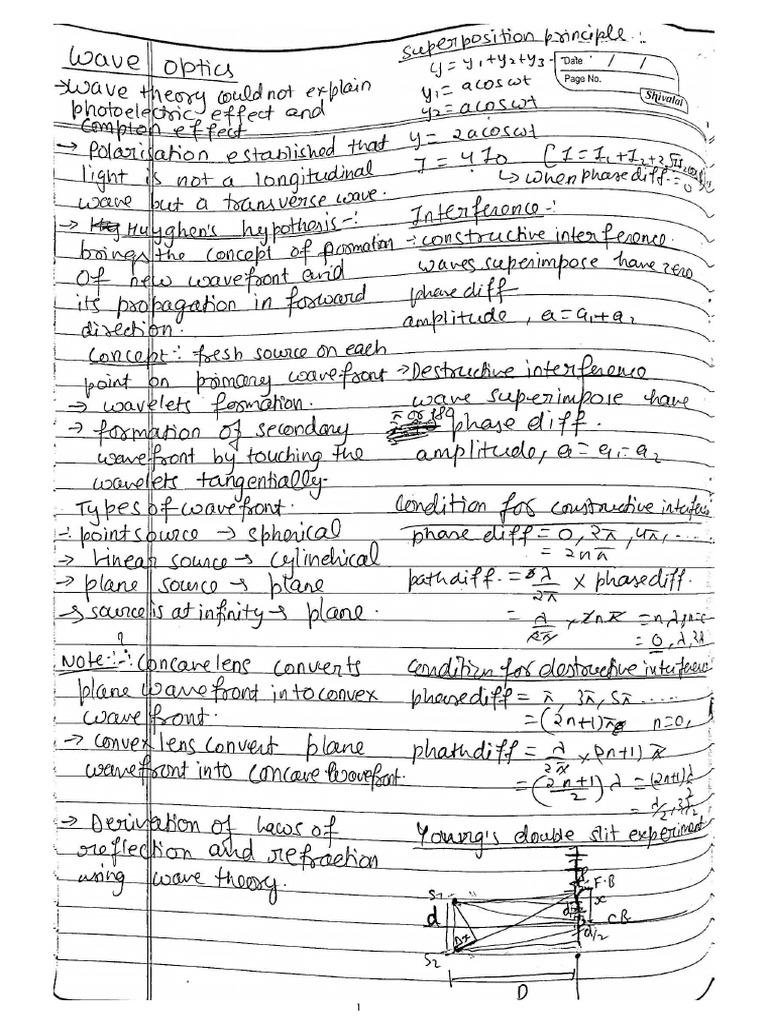 Wave optics
→ Wave theory could not explain
photoelectric effect and
Compton effect
→ Polarisation established that
light is not a longitudinal
wave but a transverse wave.
→ Huyghen's hypothesis -:
brings the concept of formation
of new wavefront and
its propagation in forward
direction.
Concept :- fresh source on each
point on primary wavefront
→ wavelets formation.
→ formation of secondary
wavefront by touching the
wavelets tangentially.
Types of wavefront.
∴ point source → spherical
→ Linear source → cylindrical
→ plane source → plane
→ source is at infinity → plane.
Note :- Concave lens converts
plane wavefront into convex
wavefront.
→ Convex lens convert plane
wavefront into concave wavefront.
→ Derivation of Laws of
reflection and refraction
using wave theory.
superposition principle :
y = y₁+y₂+y₃-
Date / /
Page No.
Shivalal
y₁ = acosωt
y₂ = acosωt
y = 2acosωt
I = 4I₀ [I = I₁+I₂+2
↳ when phase diff. = 0
Interference -:
∴ constructive interference.
waves superimpose have zero
phase diff
amplitude, a = a₁+a₂
→ Destructive interference
wave superimpose have
π or 180 phase diff.
amplitude, a = a₁-a₂
Condition for constructive interfere
phase diff = 0, 2π, 4π, .....
= 2nπ
path diff. = λ/2π × phase diff.
= λ/2π × 2nπ = nλ
= 0, λ,
Condition for destructive interference
phase diff = π, 3π, 5π .....
= (2n+1)π n=0,
phathdiff = λ/2π × (2n+1)π
= (2n+1/2) λ = (2n+1)λ/2
= λ/2, 3λ/2
Young's double slit experiment
S₁
d
S₂
Δx
F.B
x
CB
d/2
D
1